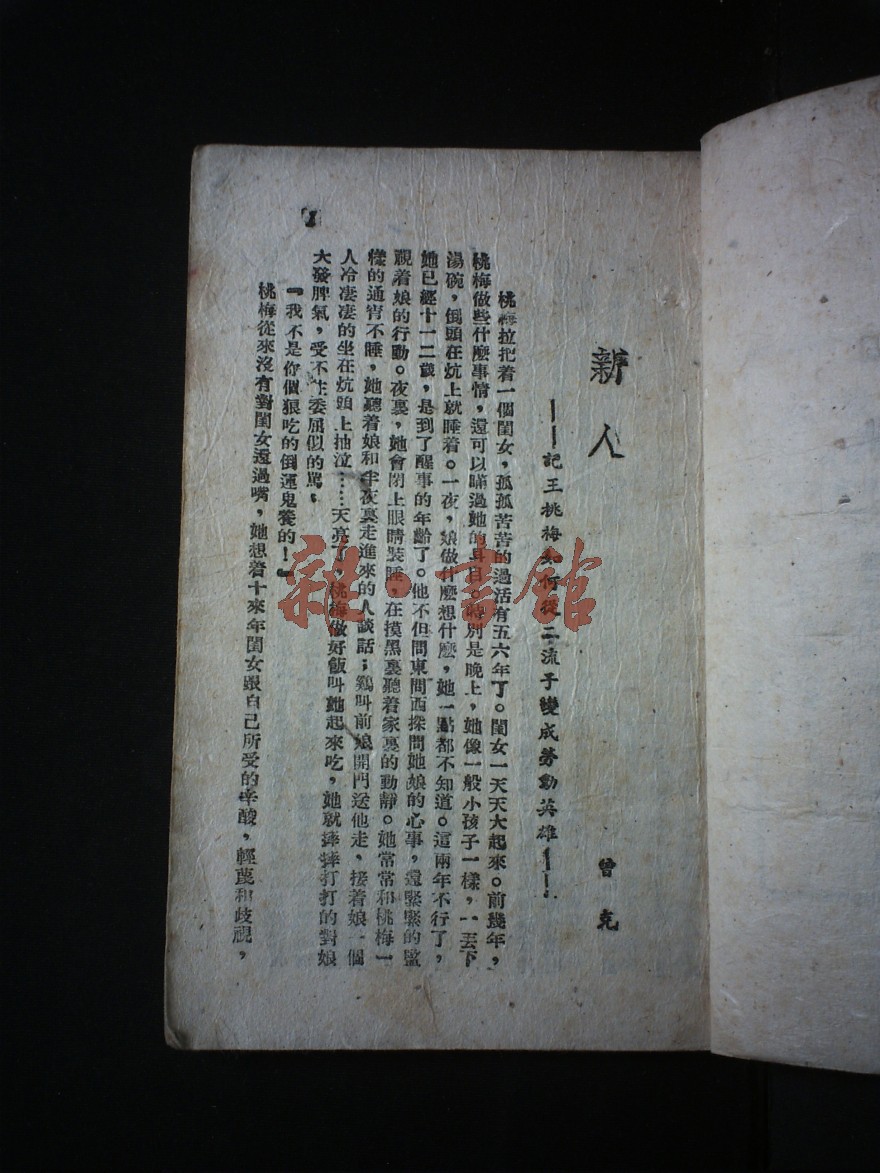 新人
——記王桃梅如何從二流子變成勞動英雄——
曾克
桃梅拉把着一個閨女，孤孤苦苦的過活有五六年了。閨女一天天大起來。前幾年，
桃梅做些什麼事情，還可以瞞過她的耳目。特別是晚上，她像一般小孩子一樣，一丟下
湯碗，倒頭在炕上就睡着。一夜，娘做什麼想什麼，她一點都不知道。這兩年不行了，
她已經十一二歲，是到了醒事的年齡了。他不但問東問西探問她娘的心事，還緊緊的監
視着娘的行動。夜裏，她會閉上眼睛裝睡，在摸黑裏聽着家裏的動靜。她常常和桃梅一
樣的通宵不睡，她聽着娘和半夜裏走進來的人談話；鷄叫前娘開門送他走，接着娘一個
人冷凄凄的坐在炕頭上抽泣……天亮了，桃梅做好飯叫她起來吃，她就摔摔打打的對娘
大發脾氣，受不住委屈似的駡；
『我不是你個狠吃的倒運鬼養的！』
桃梅從來沒有對閨女還過嘴，她想着十來年閨女跟自己所受的辛酸，輕蔑和歧視，
1
雜·書館